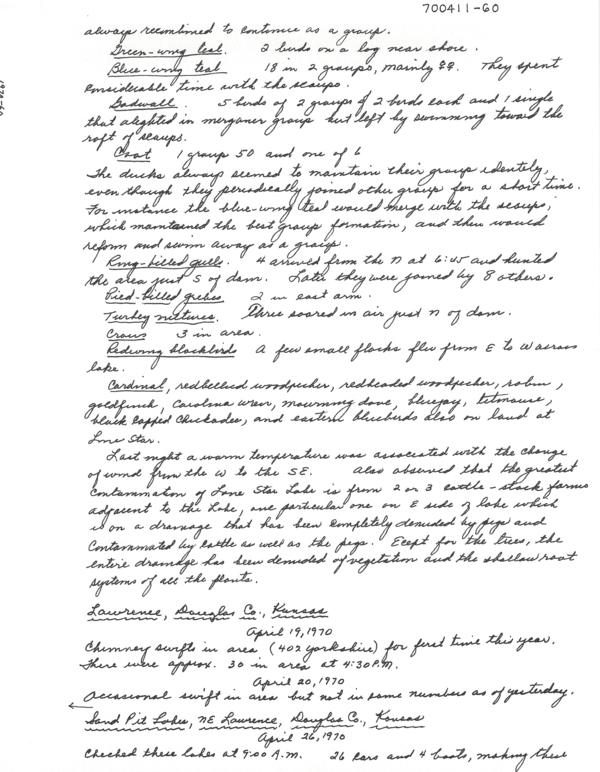 700411-60
1970-60
always recombined to continue as a group.
Green-wing teal. 2 birds on a log near shore.
Blue-wing teal 18 in 2 groups, mainly ♀♀. They spent
considerable time with the scaups.
Gadwall. 5 birds of 2 groups of 2 birds each and 1 single
that alighted in merganser group but left by swimming toward the
raft of scaups.
Coot 1 group 50 and one of 6
The ducks always seemed to maintain their group identely,
even though they periodically joined other group for a short time.
For instance the blue-wing teal would merge with the scaups,
which maintained the best group formation, and then would
reform and swim away as a group.
Ring-billed gulls. 4 arrived from the N at 6:45 and hunted
the area just S of dam. Later they were joined by 8 others.
Pied-billed grebes 2 in east arm.
Turkey vultures. Three soared in air just N of dam.
Crows 3 in area.
Redwing blackbirds A few small flocks flew from E to W across
lake.
Cardinal, redbellied woodpecker, redheaded woodpecker, robin,
goldfinch, Carolina wren, mourning dove, bluejay, titmouse,
black capped chickadee, and eastern bluebirds also on land at
Lone Star.
Last night a warm temperature was associated with the change
of wind from the W to the SE. Also observed that the greatest
contamination of Lone Star Lake is from 2 or 3 cattle-stock farms
adjacent to the Lake, one particular one on E side of lake which
is on a drainage that has been completely denuded by pigs and
contaminated by cattle as well as the pigs. Ecept for the trees, the
entire drainage has been denuded of vegetation and the shallow root
systems of all the plants.
Lawrence, Douglas Co., Kansas
April 19, 1970
Chimney swifts in area (402 Yorkshire) for first time this year.
There were approx. 30 in area at 4:30 P.M.
April 20, 1970
Occasional swift in area but not in same numbers as of yesterday.
Sand Pit Lakes, NE Lawrence, Douglas Co., Kansas
April 26, 1970
Checked these lakes at 9:00 A.M. 26 cars and 4 boats, making these